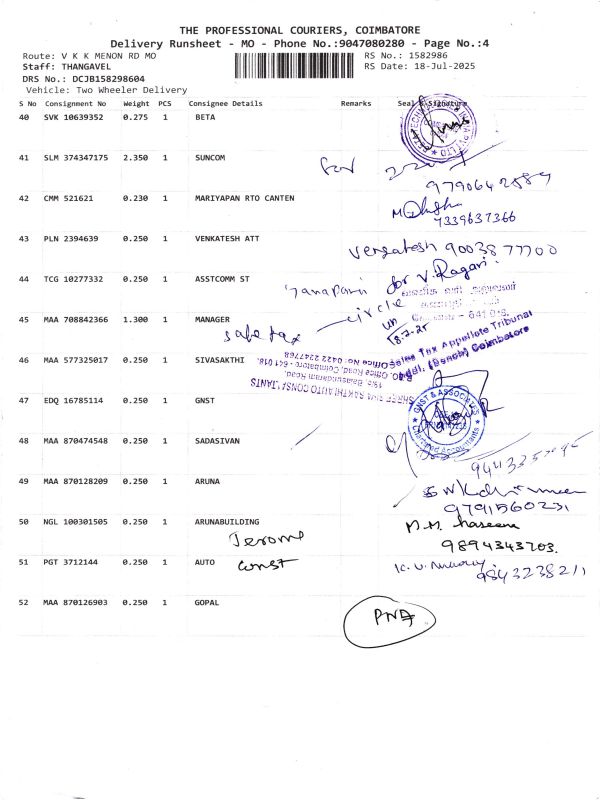 THE PROFESSIONAL COURIERS, COIMBATORE
Delivery Runsheet - MO - Phone No.:9047080280 - Page No.:4
Route: V K K MENON RD MO
RS No.: 1582986
Staff: THANGAVEL
RS Date: 18-Jul-2025
DRS No.: DCJB158298604
Vehicle: Two Wheeler Delivery
S No Consignment No Weight PCS Consignee Details Remarks Seal & Signature
40 SVK 10639352 0.275 1 BETA
41 SLM 374347175 2.350 1 SUNCOM
for
9790642889
42 CMM 521621 0.230 1 MARIYAPAN RTO CANTEN
7339637366
43 PLN 2394639 0.250 1 VENKATESH ATT
Vengatesh 9003877700
44 TCG 10277332 0.250 1 ASSTCOMM ST
for V. Ragavi.
circle
45 MAA 708842366 1.300 1 MANAGER
18-7-25
Sales Tax Appellate Tribunal
Addl. (Bench) Coimbatore
46 MAA 577325017 0.250 1 SIVASAKTHI
SHREE SIVA SAKTHI AUTO CONSULTANTS
Office No: 0422 2247768
47 EDQ 16785114 0.250 1 GNST
GNST & ASSOCIATES
Chartered Accountants
48 MAA 870474548 1 SADASIVAN 0.250
49 MAA 870128209 0.250 1 ARUNA
9791560231
50 NGL 100301505 0.250 1 ARUNABUILDING
Jerome
const
M.M. haseena
9894343703.
51 PGT 3712144 0.250 1 AUTO
9843238211
52 MAA 870126903 0.250 1 GOPAL
PNA